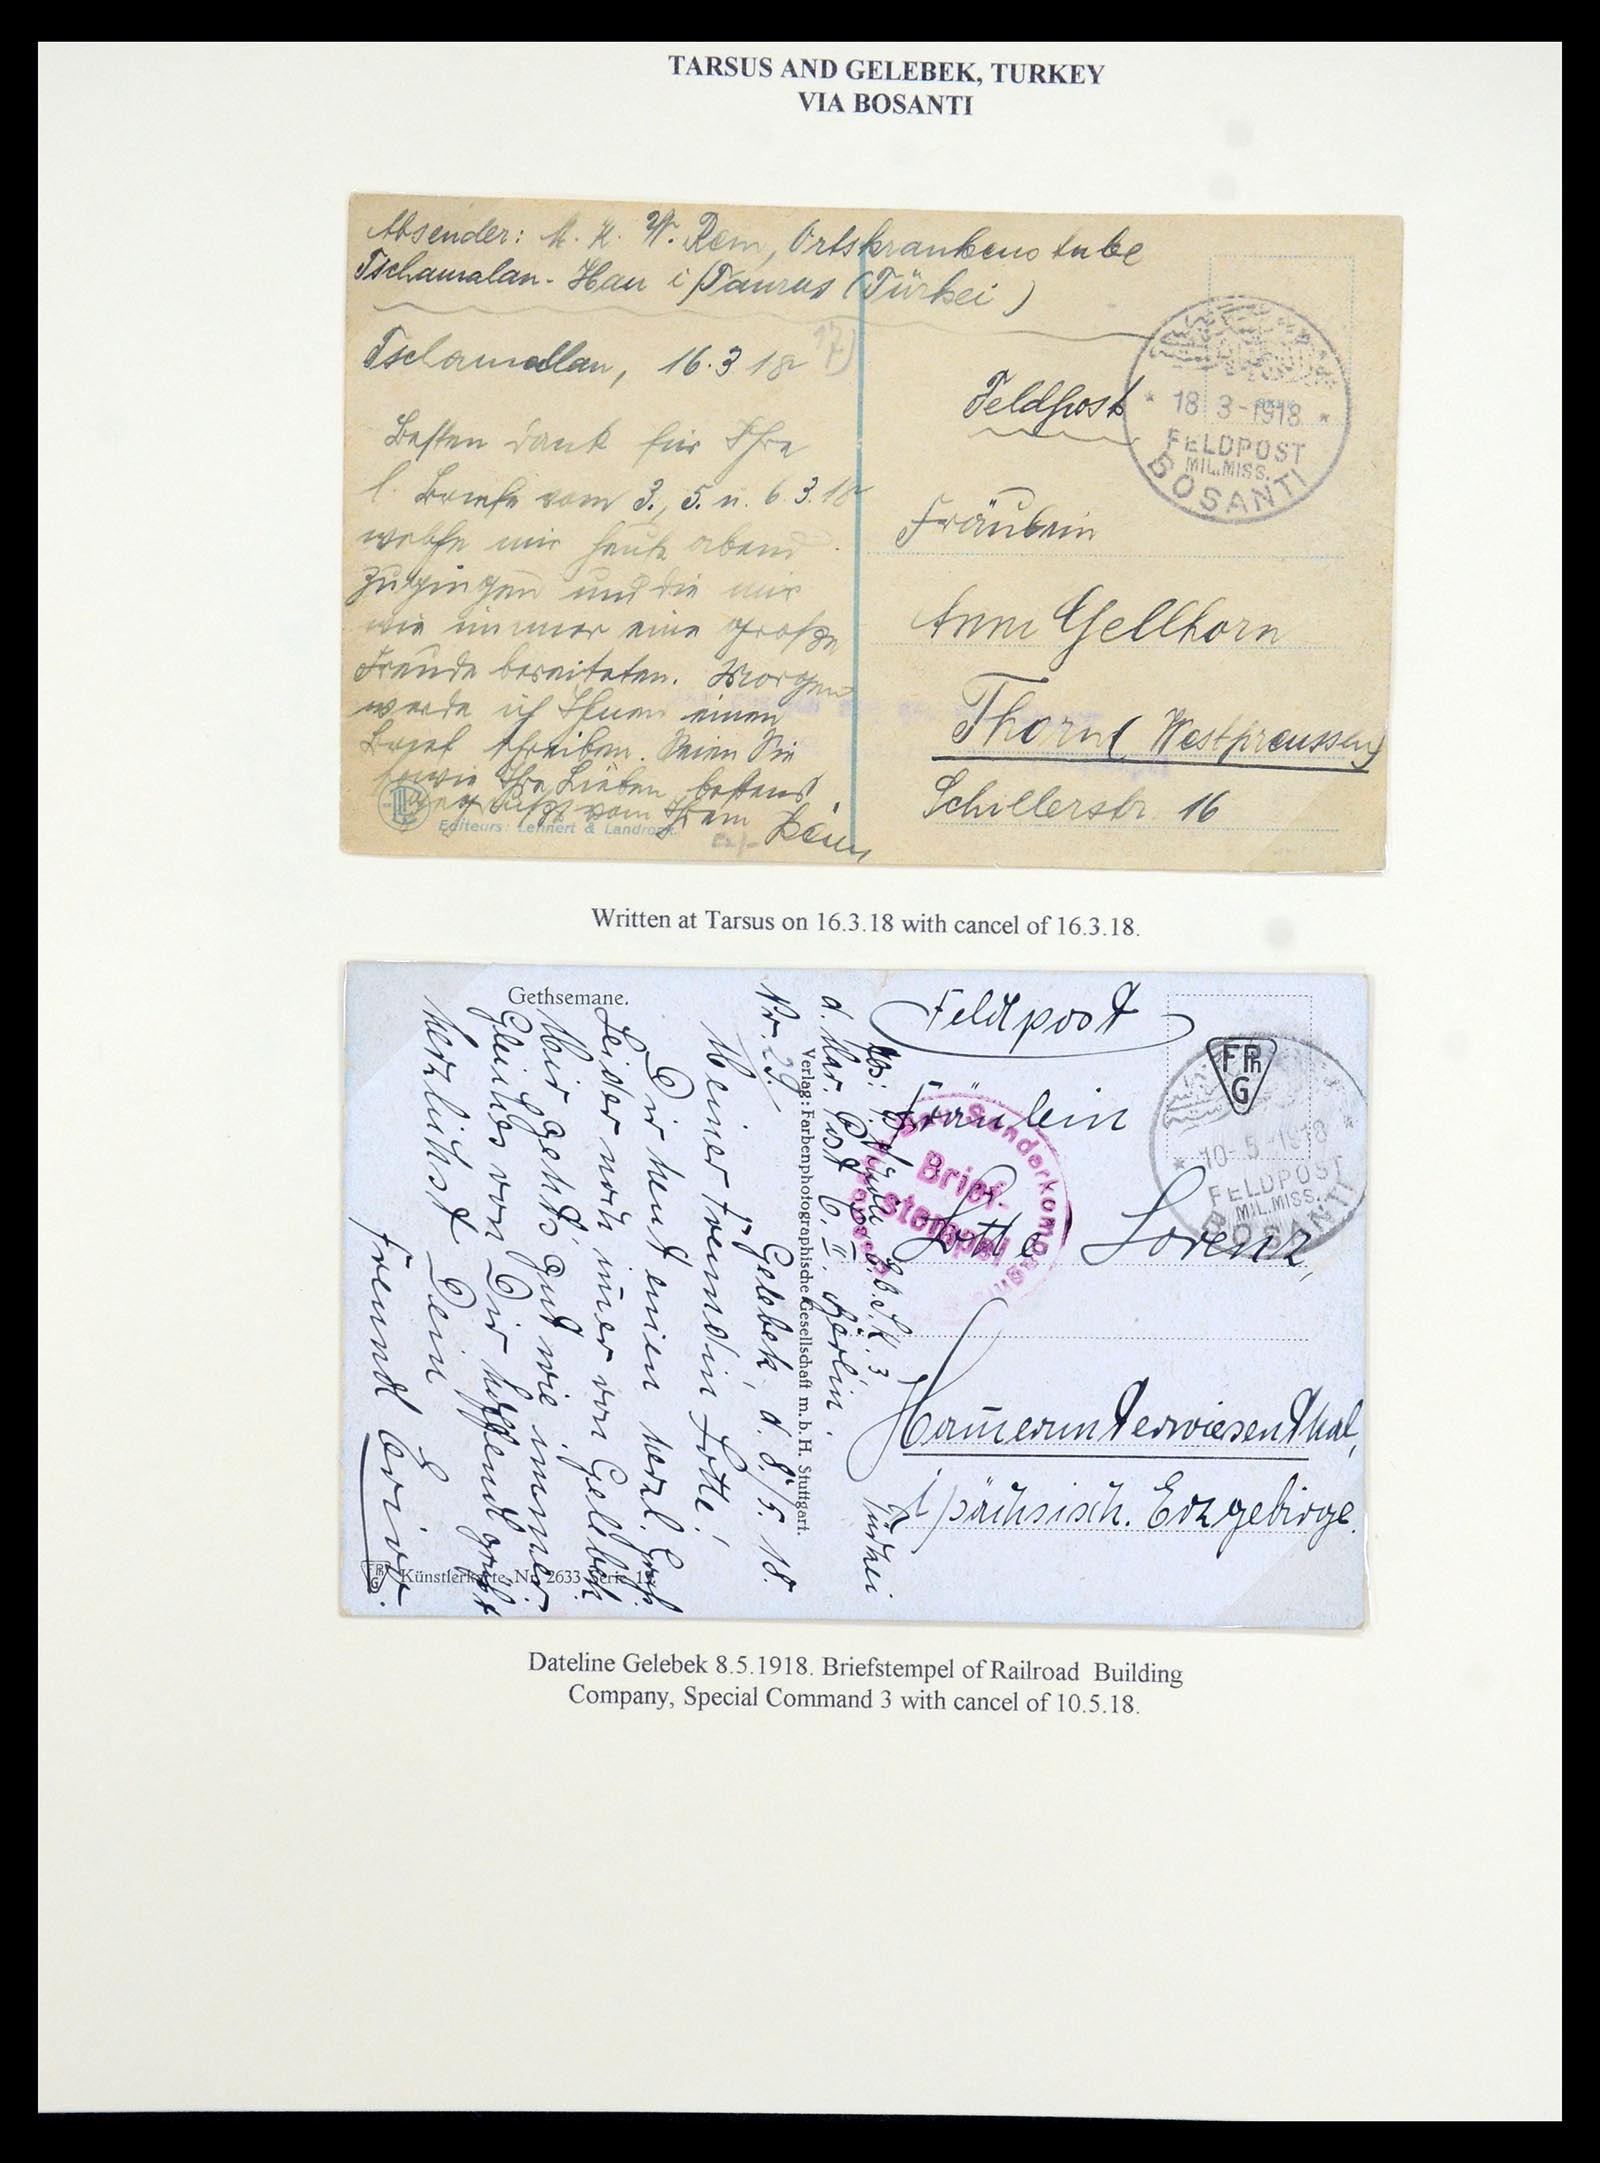 TARSUS AND GELEBEK, TURKEY
VIA BOSANTI
Absender: M. K. W. Rem, Ortskrankenstube
Tschamalan-Han i/Taurus (Türkei)
Tschamallan, 16.3 18
Besten Dank für Ihre
l. Briefe vom 3., 5. u. 6.3.18
welche mir heute abend
zugingen und die mir
wie immer eine große
Freude bereiteten. Morgen
werde ich Ihnen einen
Brief schreiben. Seien Sie
sowie Ihre Lieben bestens
gegrüßt vom Ihrem
Editeurs: Lehnert & Landrock
Feldpost
18 3-1918
FELDPOST
MIL.MISS.
BOSANTI
Fräulein
Anni Gellhorn
Thorn (Westpreussen)
Schillerstr. 16
Written at Tarsus on 16.3.18 with cancel of 16.3.18.
Gethsemane.
Nr. 29.
Gelebek, d. 8./5. 18.
Meiner Freundin Lotte!
Dir heut einen herzl. Gruß.
Leider noch immer von Gelebek.
Mir geht's gut wie immer
Gleiches von Dir hoffend grüßt
herzlichst Dein
Freund Erwin.
Künstlerkarte Nr. 2633 Serie
Verlag: Farbenphotographische Gesellschaft m. b. H. Stuttgart.
d. Mar. Post B. II. Berlin
Türkei
Feldpost
FPh
G
10-5-1918
FELDPOST
MIL.MISS.
BOSANTI
Sonderkomp
Brief-
stempel
Fräulein
Lotte Lorenz,
Hammerunterwiesenthal,
i/sächsisch. Erzgebirge.
Dateline Gelebek 8.5.1918. Briefstempel of Railroad Building
Company, Special Command 3 with cancel of 10.5.18.